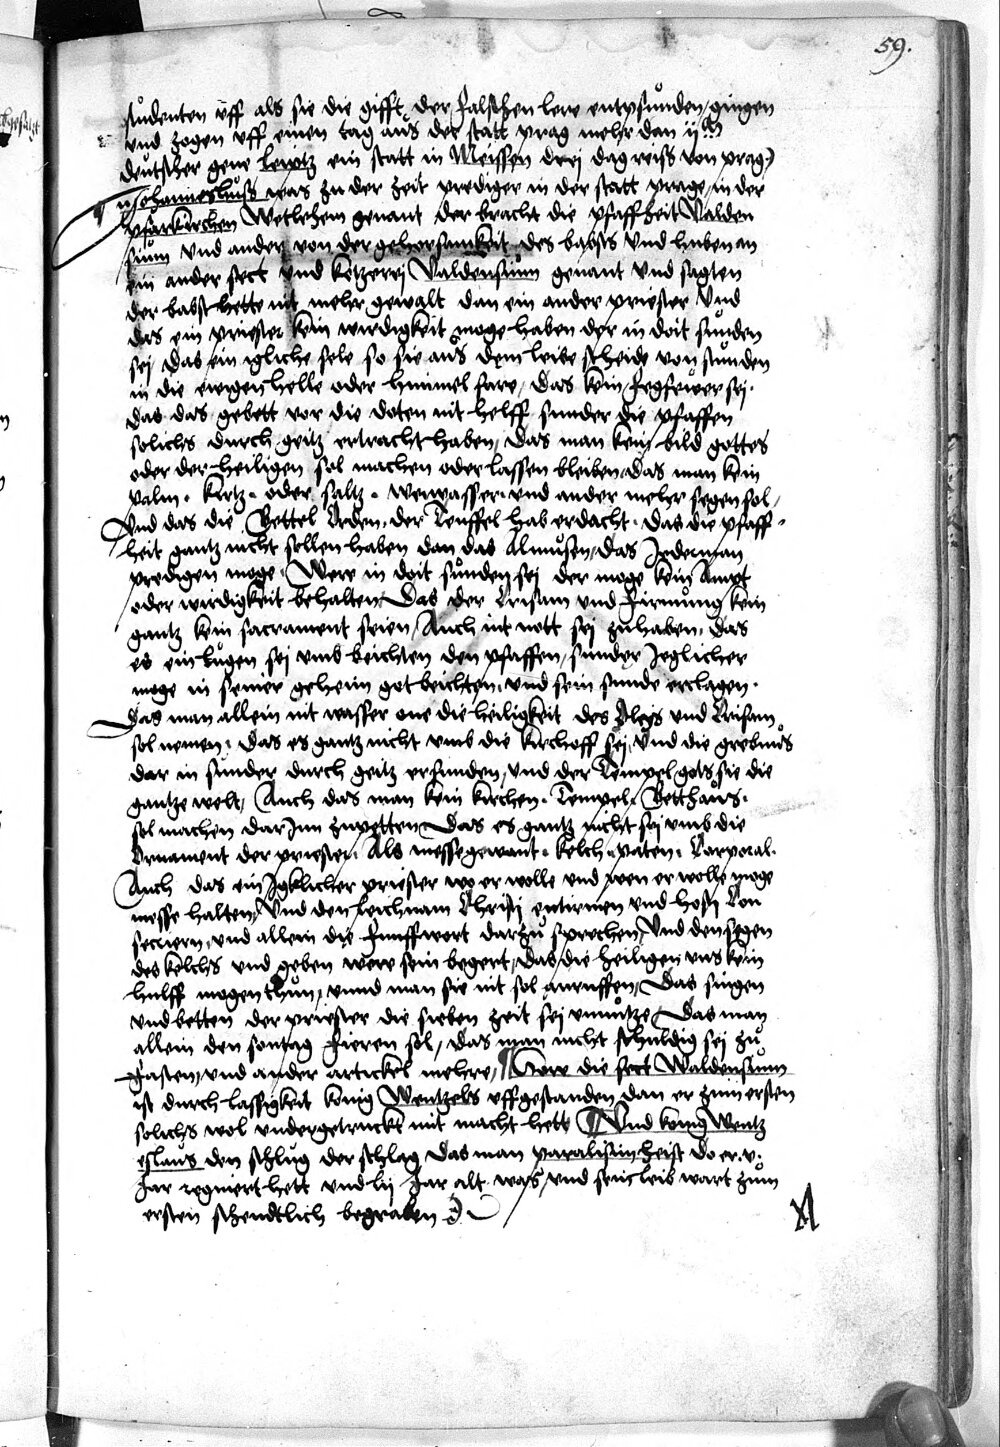 59.
studenten uff als sie die gifft der falschen lere entpfunden gingen
und zogen uff einen tag aus der statt prag mehr dan ij^m
deutscher gene leiptz ein statt in Meissen drej dag reiss von prag
Johannes huss was zu der zeit prediger in der statt prage in der
pfarkirchen Betlehem genant der bracht die pfaffheit Walden
sium und ander von der gehorsamkeit des babsts und huben an
ein ander sect und ketzerej Valdensium genant und sagten
der babst hette nit mehr gewalt dan ein ander priester Und
das ein priester kein wirdigkeit moge haben der in doit sunden
sej Das ein igliche sele so sie aus dem leibe scheide von stunden
in die ewigen helle oder himmel fare, Das kein fegfewer sej.
das das gebett vor die doten nit helff sunder die pfaffen
solichs durch geitz ertracht haben, Das man kein bild gottes
oder der heiligen sol machen oder lassen bleiben das man kein
palm. kertz. oder saltz. weiwasser. und ander meher segen sol,
Und das die Bettel Orden. der Teuffel hab erdacht. Das die pfaff
heit gantz nicht sollen haben dan das Almusen, das Jederman
predigen moge. Wer in doit sunden sej der moge kein Ampt
oder wirdigkeit behalten Das der Crisam und firmung kein
gantz kein sacrament seien, Auch nit nott sej zu haben, das
es ein lugen sej umb beichten den pfaffen, sunder Jeglicher
moge in seiner geheim got beichten, und sein sunde erclagen.
Das man allein nit wasser one die heiligkeit des Oleis und Crisam
sol nemen. Das es gantz nicht umb die kirchoff sej, Und die grebnus
dar in sunder durch geitz erfunden, und der Tempel gots sie die
gantze welt, Auch das man kein kirchen. Tempel. Betthaus.
sol machen dar Inn zu petten Das es gantz nicht sej umb die
Ornament der priester. Als messegewant. kelch. paten. Corporal.
Auch das ein Igklicher priester wo er wolle und wen er wolle moge
messe halten, Und den leichnam Christj und hostj Con
secriern, und allein die funff wort darzu sprechen, Und den segen
des kelchs und geben were sein begert, Das die heiligen uns kein
hulff mogen thun, unnd man sie nit sol anruffen, Das singen
und betten der priester die sieben zeit sej unnutze, Das man
allein den sontag fieren sol, das man nicht schuldig sej zu
fasten, und ander artickel mehre, die sect Waldensium
ist durch lassigkeit konig Wentzels uffgestanden, dan er zum ersten
solichs wol undergetruckt mit macht hett Und konig Wentz
eslaus den schlug der schlag das man paralisin heist do er .v.
Jar regniert hett und lvj Jar alt was, und sein leib wart zum
ersten schendtlich begraben